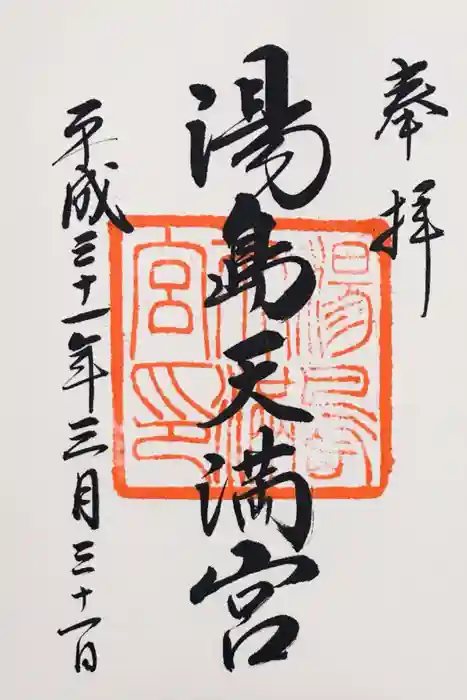 奉拝
湯島天満宮
平成三十一年三月三十一日
湯島天満宮印